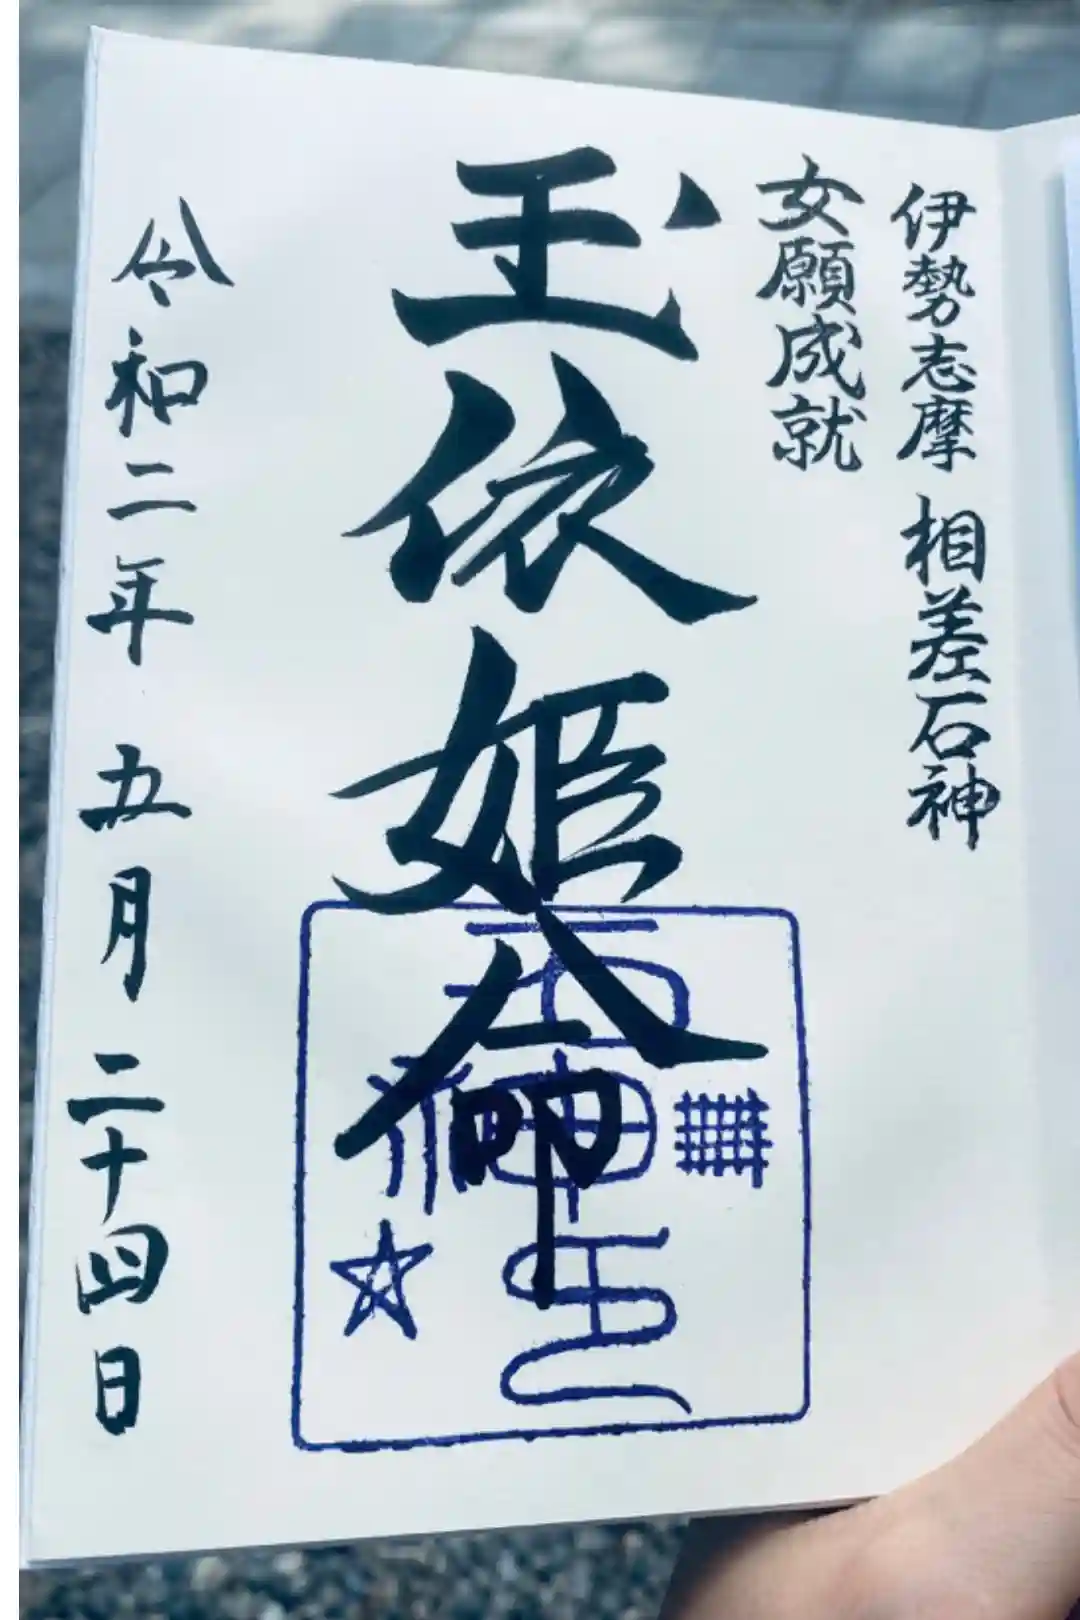 伊勢志摩 相差石神
女願成就
玉依姫命
令和二年 五月 二十四日
石神